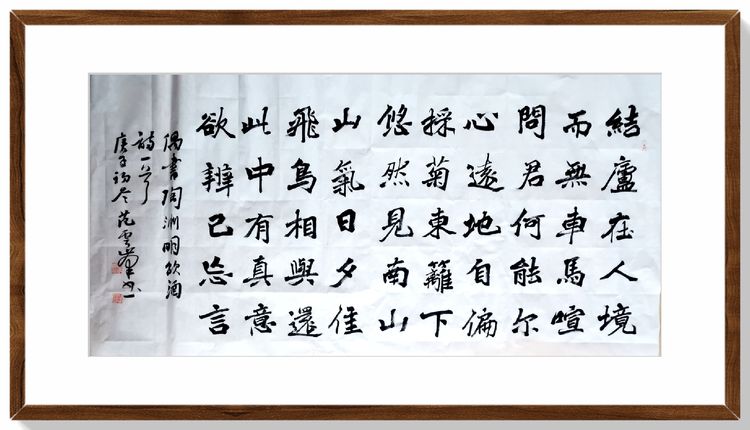 結廬在人境
而無車馬喧
問君何能尔
心遠地自偏
採菊東籬下
悠然見南山
山氣日夕佳
飛鳥相與還
此中有真意
欲辯已忘言
偶書陶渊明飲酒
詩一首
庚子初冬范雲